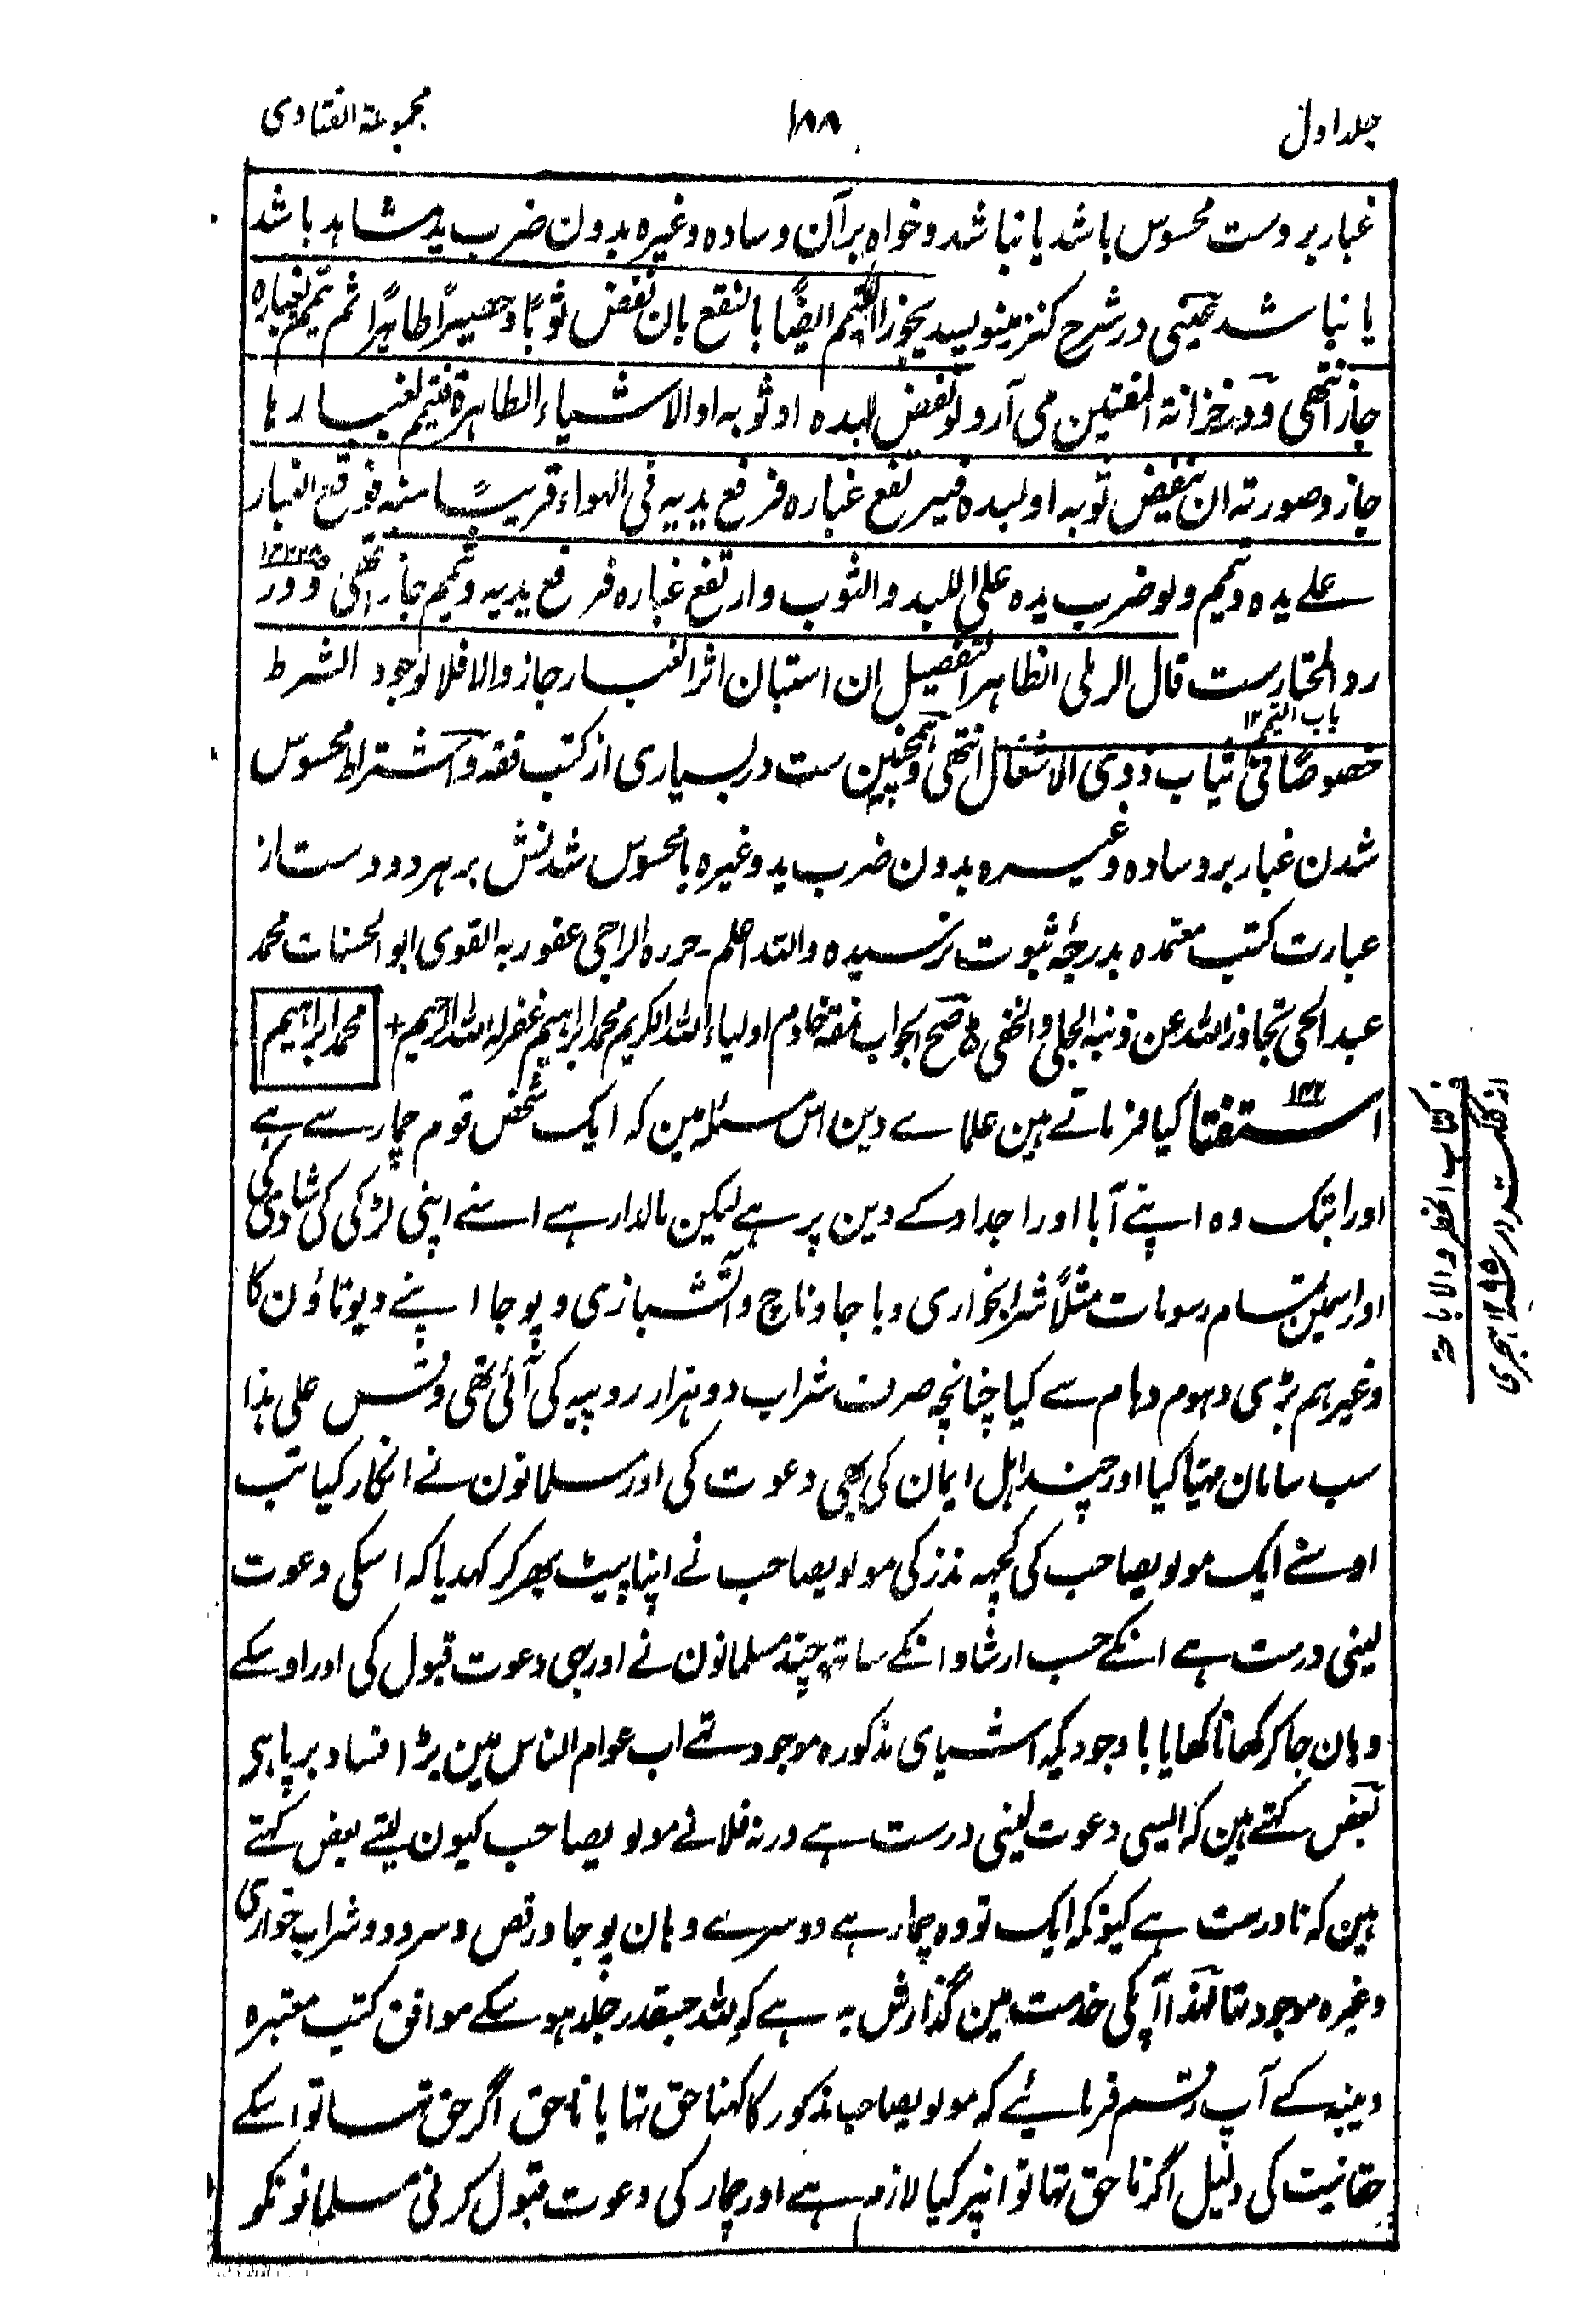 جلد اول
١٨٨
مجموعۃ الفتاوی
غبار بر دست محسوس باشد یا نباشد و خواہ بر آن وسادہ وغیرہ بدون ضرب ید مشاہد باشد
یا نباشد عینی در شرح کنز مینویسد یجوز التیمم ایضًا بالنقع بان نفض ثوبًا او حصیرًا طاہرًا ثم تیمم بغبارہ
جاز انتھی و در خزانۃ المفتین می آرد لو نفض لبدہ او ثوبہ او الاشیاء الطاہرۃ فتیمم لغبارہا
جاز و صورتہ ان ینفض ثوبہ او لبدہ فیرتفع غبارہ فرفع یدیہ فی الہواء قریبًا منہ فوقع الغبار
علے یدہ و تیمم ولو ضرب یدہ علی اللبد والثوب وارتفع غبارہ فرفع یدیہ و تیمم جاز انتھی و در
رد المختارست قال الرملی الظاہر التفصیل ان استبان اثر الغبار جاز والا فلا لوجود الشرط
باب التیمم ١٢
خصوصًا فی ثیاب ذوی الاشغال انتھی و ہمچنین ست در بسیاری از کتب فقہ و اشتراط محسوس
شدن غبار بر وسادہ وغیرہ بدون ضرب ید وغیرہ یا محسوس شدنش بر ہر دو دست از
عبارت کتب معتمدہ بدرجۂ ثبوت نرسیدہ واللہ اعلم۔ حررہ الراجی عفو ربہ القوی ابو الحسنات محمد
عبد الحی تجاوز اللہ عن ذنبہ الجلی والخفی صح الجواب نمقہ خادم اولیاء اللہ الکریم محمد ابراہیم غفر لہ اللہ الرحیم +
محمد ابراہیم
استفتا ١٢٢ کیا فرماتے ہین علماے دین اس مسئلہ مین کہ ایک شخص قوم چمار سے ہے
اور ابتک وہ اپنے آبا اور اجداد کے دین پر ہے لیکن مالدار ہے اسنے اپنی لڑکی کی شادی کی
اور اسمین تمام رسومات مثلًا شرابخواری و باجا و ناچ و آتشبازی و پوجا اپنے دیوتاؤن کا
وغیرہم بڑی دہوم دہام سے کیا چنانچہ صرف شراب دو ہزار روپیہ کی آئی تھی وقس علی ہذا
سب سامان مہیا کیا اور چند اہل ایمان کی بھی دعوت کی اور مسلمانون نے انکار کیا تب
اوسنے ایک مولویصاحب کی کچہہ نذر کی مولویصاحب نے اپنا پیٹ بھر کر کہدیا کہ اسکی دعوت
لینی درست ہے انکے حسب ارشاد انکے ساتہہ چند مسلمانون نے اور بھی دعوت قبول کی اور اوسکے
وہان جاکر کھانا کھایا باوجودیکہ اشیای مذکورہ موجود تھے اب عوام الناس مین بڑا فساد برپا ہے
بعض کہتے ہین کہ ایسی دعوت لینی درست ہے ورنہ فلانے مولویصاحب کیون لیتے بعض کہتے
ہین کہ نادرست ہے کیونکہ ایک تو وہ چمار ہے دوسرے وہان پوجا و رقص و سرود و شراب خواری
وغیرہ موجود تھا لہٰذا آپکی خدمت مین گذارش یہ ہے کہ للہ جسقدر جلد ہو سکے موافق کتب معتبرہ
دینیہ کے آپ رقم فرمائیے کہ مولویصاحب مذکور کا کہنا حق تہا یا ناحق اگر حق تہا تو اسکے
حقانیت کی دلیل اگر ناحق تہا تو انپر کیا لازم ہے اور چمار کی دعوت قبول کرنی مسلمانونکو
کتاب الحظر والاباحۃ
از کلکتہ در ہجری